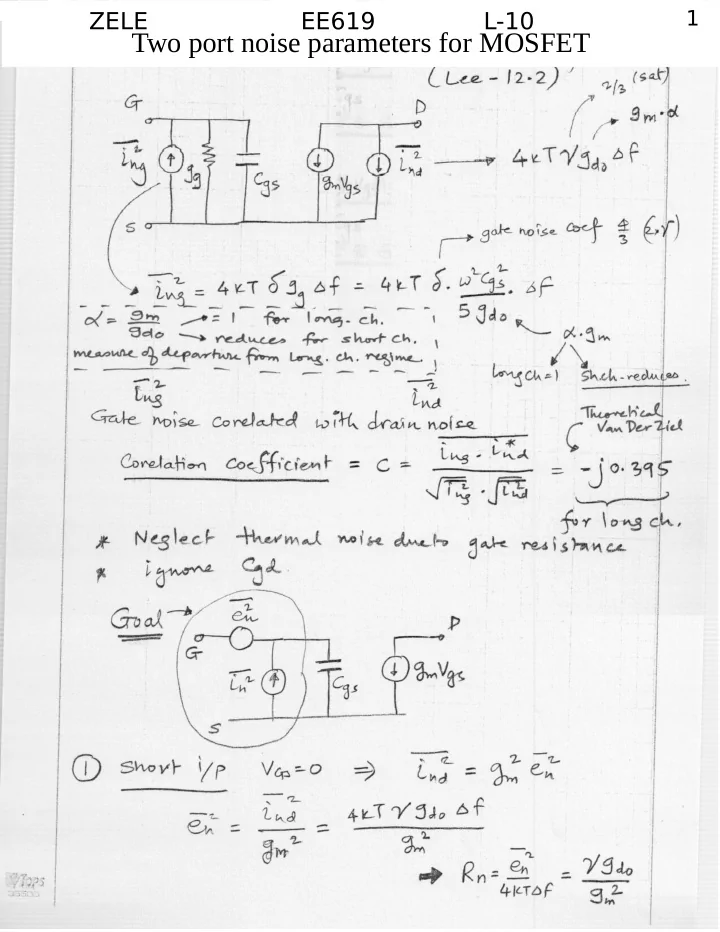 ZELE EE619 L-10 1
Two port noise parameters for MOSFET
(Lee - 12.2)
2/3 (sat)
gm·α
G
D
S
i̅ng² gg Cgs gmVgs i̅nd² → 4kTγgdo Δf
→ gate noise coef 4/3 (2×γ)
i̅ng² = 4kT δ gg Δf = 4kT δ · ω²Cgs² / 5gdo · Δf
α = gm/gdo → = 1 for long. ch.
→ reduces for short ch.
measure of departure from Long. ch. regime.
α·gm
Long ch = 1 Sh.ch-reduces.
i̅ng² i̅nd²
Gate noise corelated with drain noise
Theoretical
Van Der Ziel
Corelation coefficient = C = ing · ind* / √ing² · √ind² = -j0.395
for long ch.
* Neglect thermal noise due to gate resistance
* ignore Cgd.
Goal → e̅n²
G
D
i̅n² Cgs gmVgs
S
① Short i/p ⇒ i̅nd² = gm² e̅n²
e̅n² = i̅nd² / gm² = 4kTγgdo Δf / gm²
➡ Rn = e̅n² / 4kTΔf = γgdo / gm²